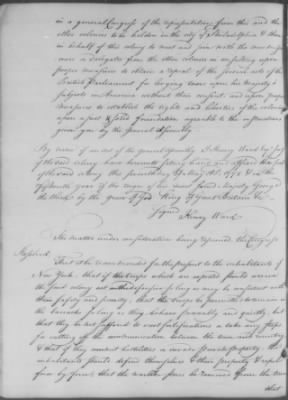 in a general Congress of the representatives from this and the
other colonies to be holden in the city of Philadelphia & there
in behalf of this colony to meet and join with the
or delegates from the other colonies in consulting upon
proper measures to obtain a repeal of the several acts of the
British Parliament for laying taxes upon his Majesty's
subjects in America without their consent and upon proper
Measures to establish the rights and liberties of the colonies
upon a just & solid foundation agreeable to the instructions
given you by the general Assembly
By virtue of an act of the general Assembly I Henry Ward Esqr Secy
of the said colony have hereunto set my hand and affixed the seal of
the said colony this day of May A.D. 1775 & in the
fifteenth year of the reign of his most Sacred Majesty George
the third by the grace of God King of Great Britain &c
Signed
Henry Ward
The matter under consideration being resumed, the Congress
Resolved
That it be recommended for the present to the inhabitants of
New York, that if the troops which are expected should arrive
the said colony act on the defensive so long as may be consistent with
their safety and security; that the troops be permitted to remain in
the barracks so long as they behave peaceably and quietly but
that they be not suffered to erect fortifications or take any steps
for cutting off the communication between the town and country
& that if they commit hostilities or invade private property, the
inhabitants should defend themselves & their property & repel
force by force; that the warlike stores be removed from the town
that